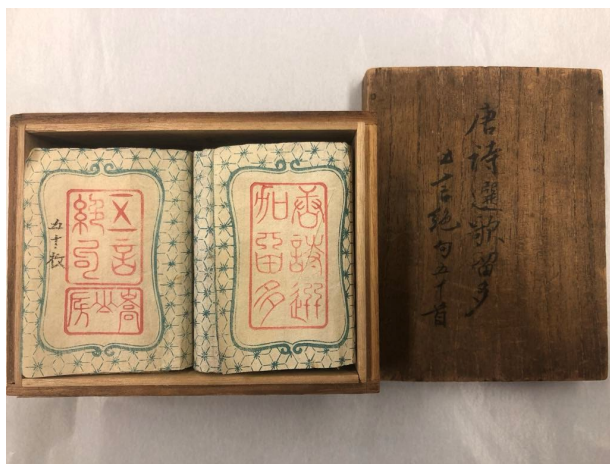 唐詩選歌留多
五言絶句五十首
唐詩選
加留多
五言
絶句
嵩山
房
五十枚